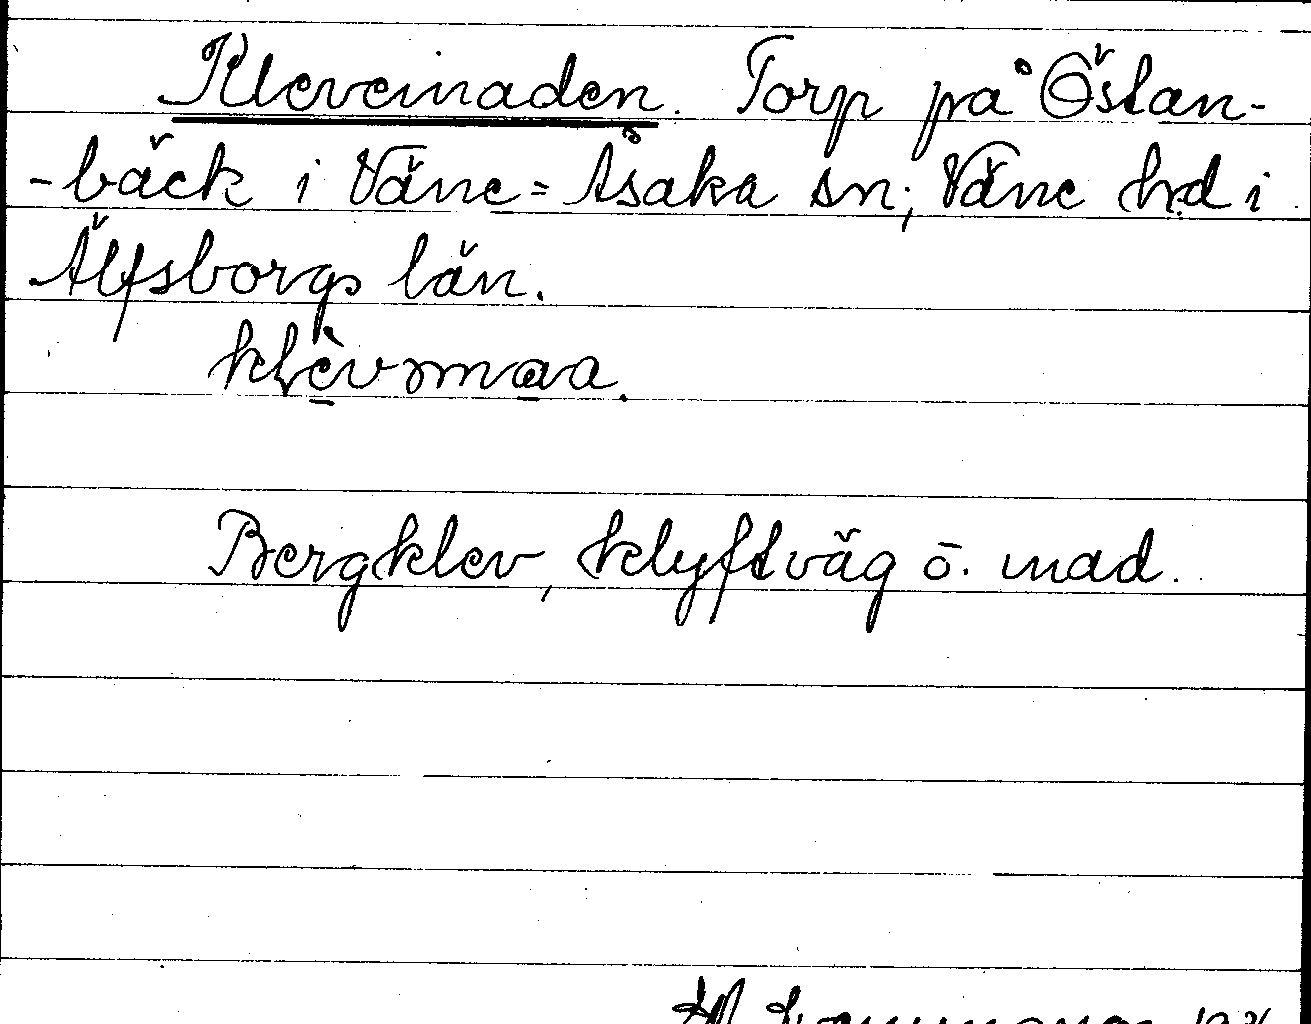 Klevemaden. Torp på Östan-
-bäck i Väne=Åsaka sn; Väne hd i
Älfsborgs län.
klèvmaa.
Bergklev, klyftväg o. mad.